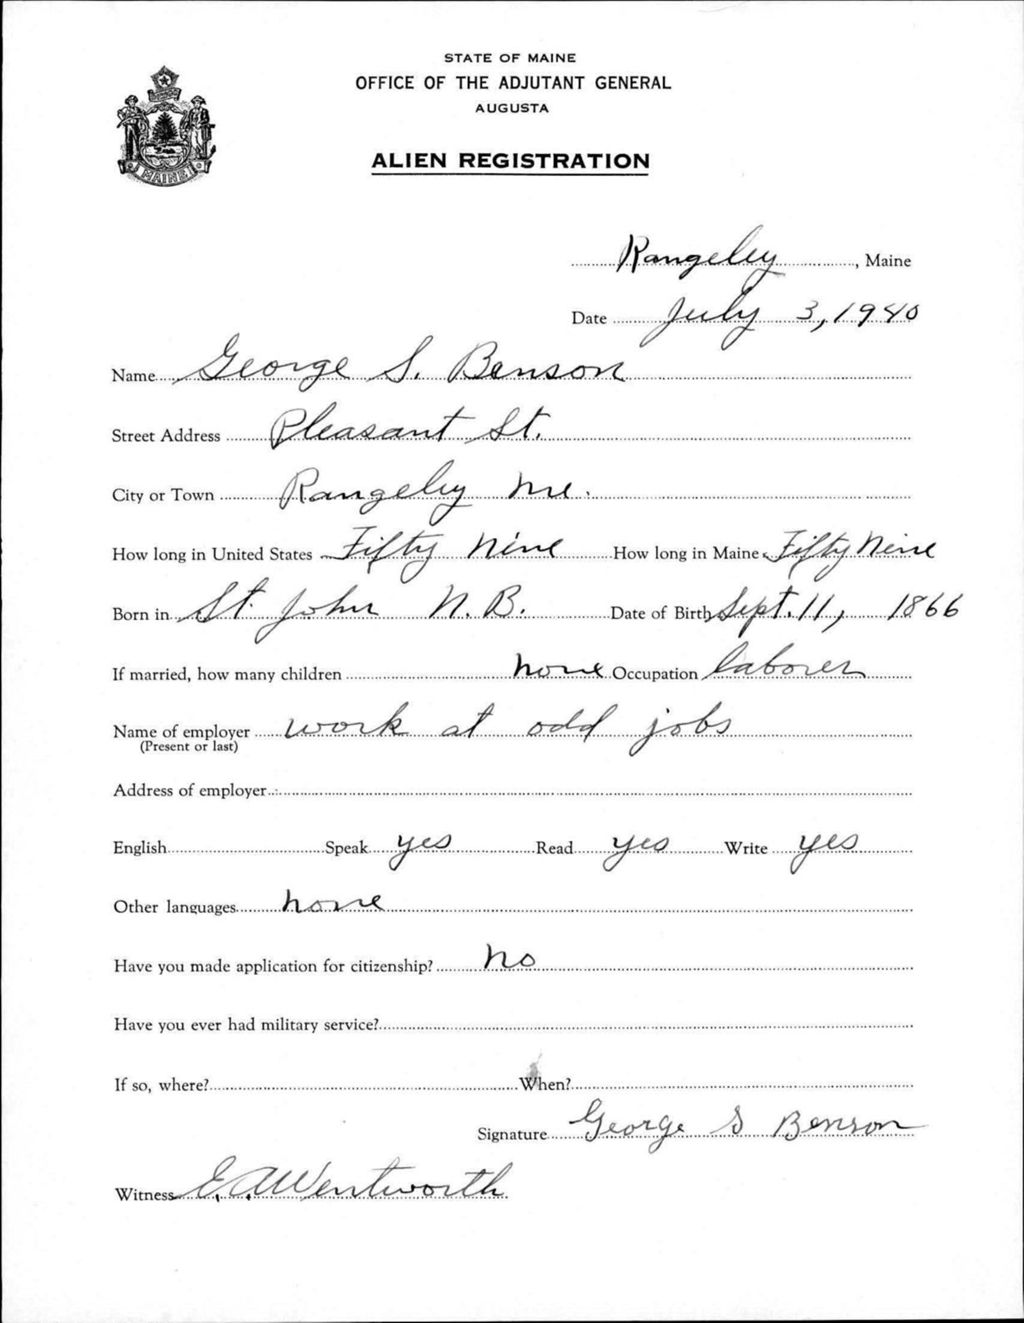 STATE OF MAINE
OFFICE OF THE ADJUTANT GENERAL
AUGUSTA
ALIEN REGISTRATION
MAINE
Rangeley, Maine
Date July 3, 1940
Name George S. Benson
Street Address Pleasant St.
City or Town Rangeley Me.
How long in United States Fifty Nine How long in Maine Fifty Nine
Born in St. John N.B. Date of Birth Sept. 11, 1866
If married, how many children none Occupation laborer
Name of employer work at odd jobs
(Present or last)
Address of employer
English Speak yes Read yes Write yes
Other languages none
Have you made application for citizenship? No
Have you ever had military service?
If so, where? When?
Signature George S Benson
Witness E. A. Wentworth